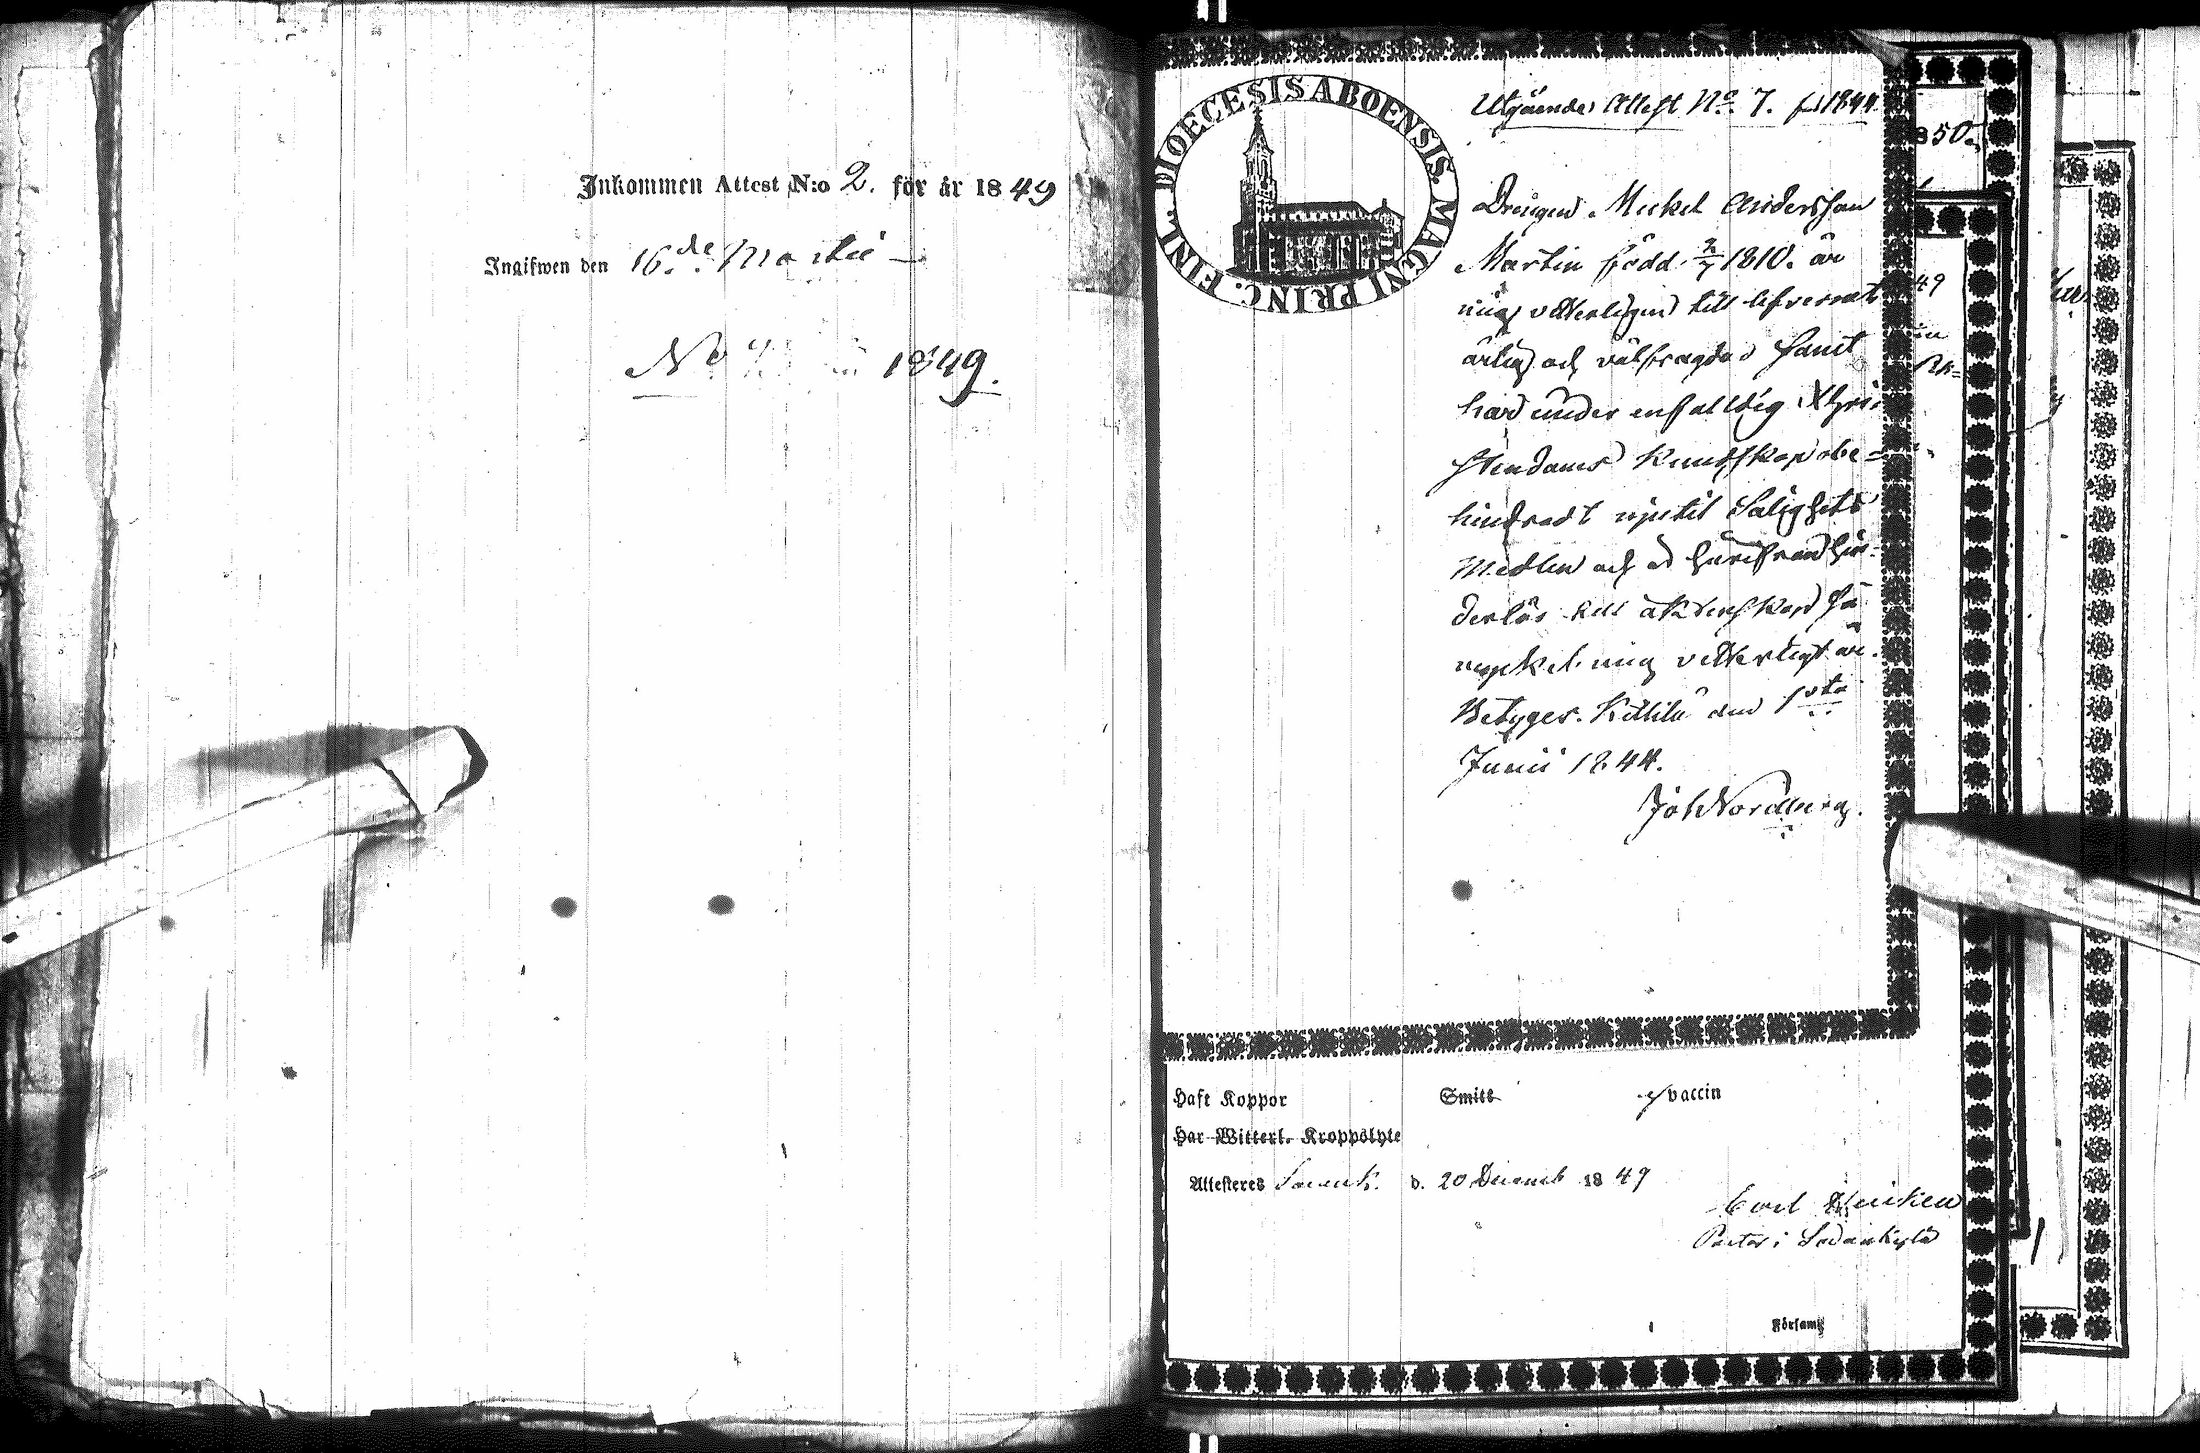 Inkommen Attest N:o 2. för år 1849
Ingifwen den 16.de Martii
No 1849.
DIOECESIS ABOENSIS. MAGNI PRINC. FINL.
Utgående Attest No. 7. f 1844.
Drengen Mickel Andersson
Martin född 2/7 1810. är
mig vitterligen till lefvernet
ärlig och välfrägdad samt
har under enfalldig Xhri
stendoms kundskap obe=
hindradt njutit Salighets
Medlen och är härifrån hin=
derlös till äktenskap så
mycket mig vitterligt är.
Betyges. Kittilä den 1sta
Junii 1844.
Joh Nordberg.
850.
49
Haft Koppor Smitt vaccin
Har Witterl. Kroppslyte
Attesteres d. 20 Decemb 1849
Carl Heiken
Pastor i Sodankylä
Församl